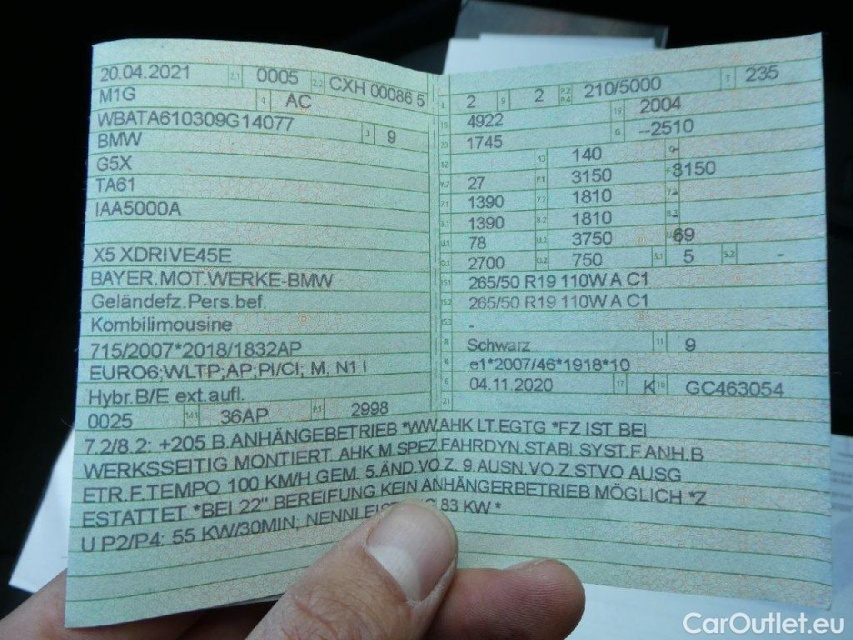 20.04.2021 0005 CXH 00086 5
M1G AC
WBATA610309G14077
BMW 9
G5X
TA61
IAA5000A
X5 XDRIVE45E
BAYER.MOT.WERKE-BMW
Geländefz.Pers.bef.
Kombilimousine
715/2007*2018/1832AP
EURO6;WLTP;AP;PI/CI; M, N1 I
Hybr.B/E ext.aufl.
0025 36AP 2998
2 2 210/5000 235
4922 2004
1745 --2510
140
27 3150 3150
1390 1810
1390 1810
78 3750 69
2700 750 5 -
265/50 R19 110W A C1
265/50 R19 110W A C1
-
Schwarz 9
e1*2007/46*1918*10
04.11.2020 K GC463054
7.2/8.2: +205 B.ANHÄNGEBETRIEB *WW.AHK LT.EGTG *FZ IST BEI
WERKSSEITIG MONTIERT. AHK M.SPEZ.FAHRDYN.STABI.SYST.F.ANH.B
ETR.F.TEMPO 100 KMH GEM. 5.ÄND.VO Z. 9.AUSN.VO.Z.STVO AUSG
ESTATTET *BEI 22" BEREIFUNG KEIN ANHÄNGERBETRIEB MÖGLICH *Z
U P2/P4: 55 KW/30MIN, 83 KW *
CarOutlet.eu